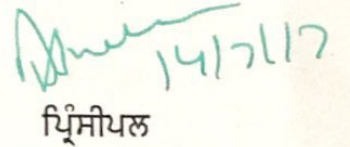 14/7/17
ਪ੍ਰਿੰਸੀਪਲ